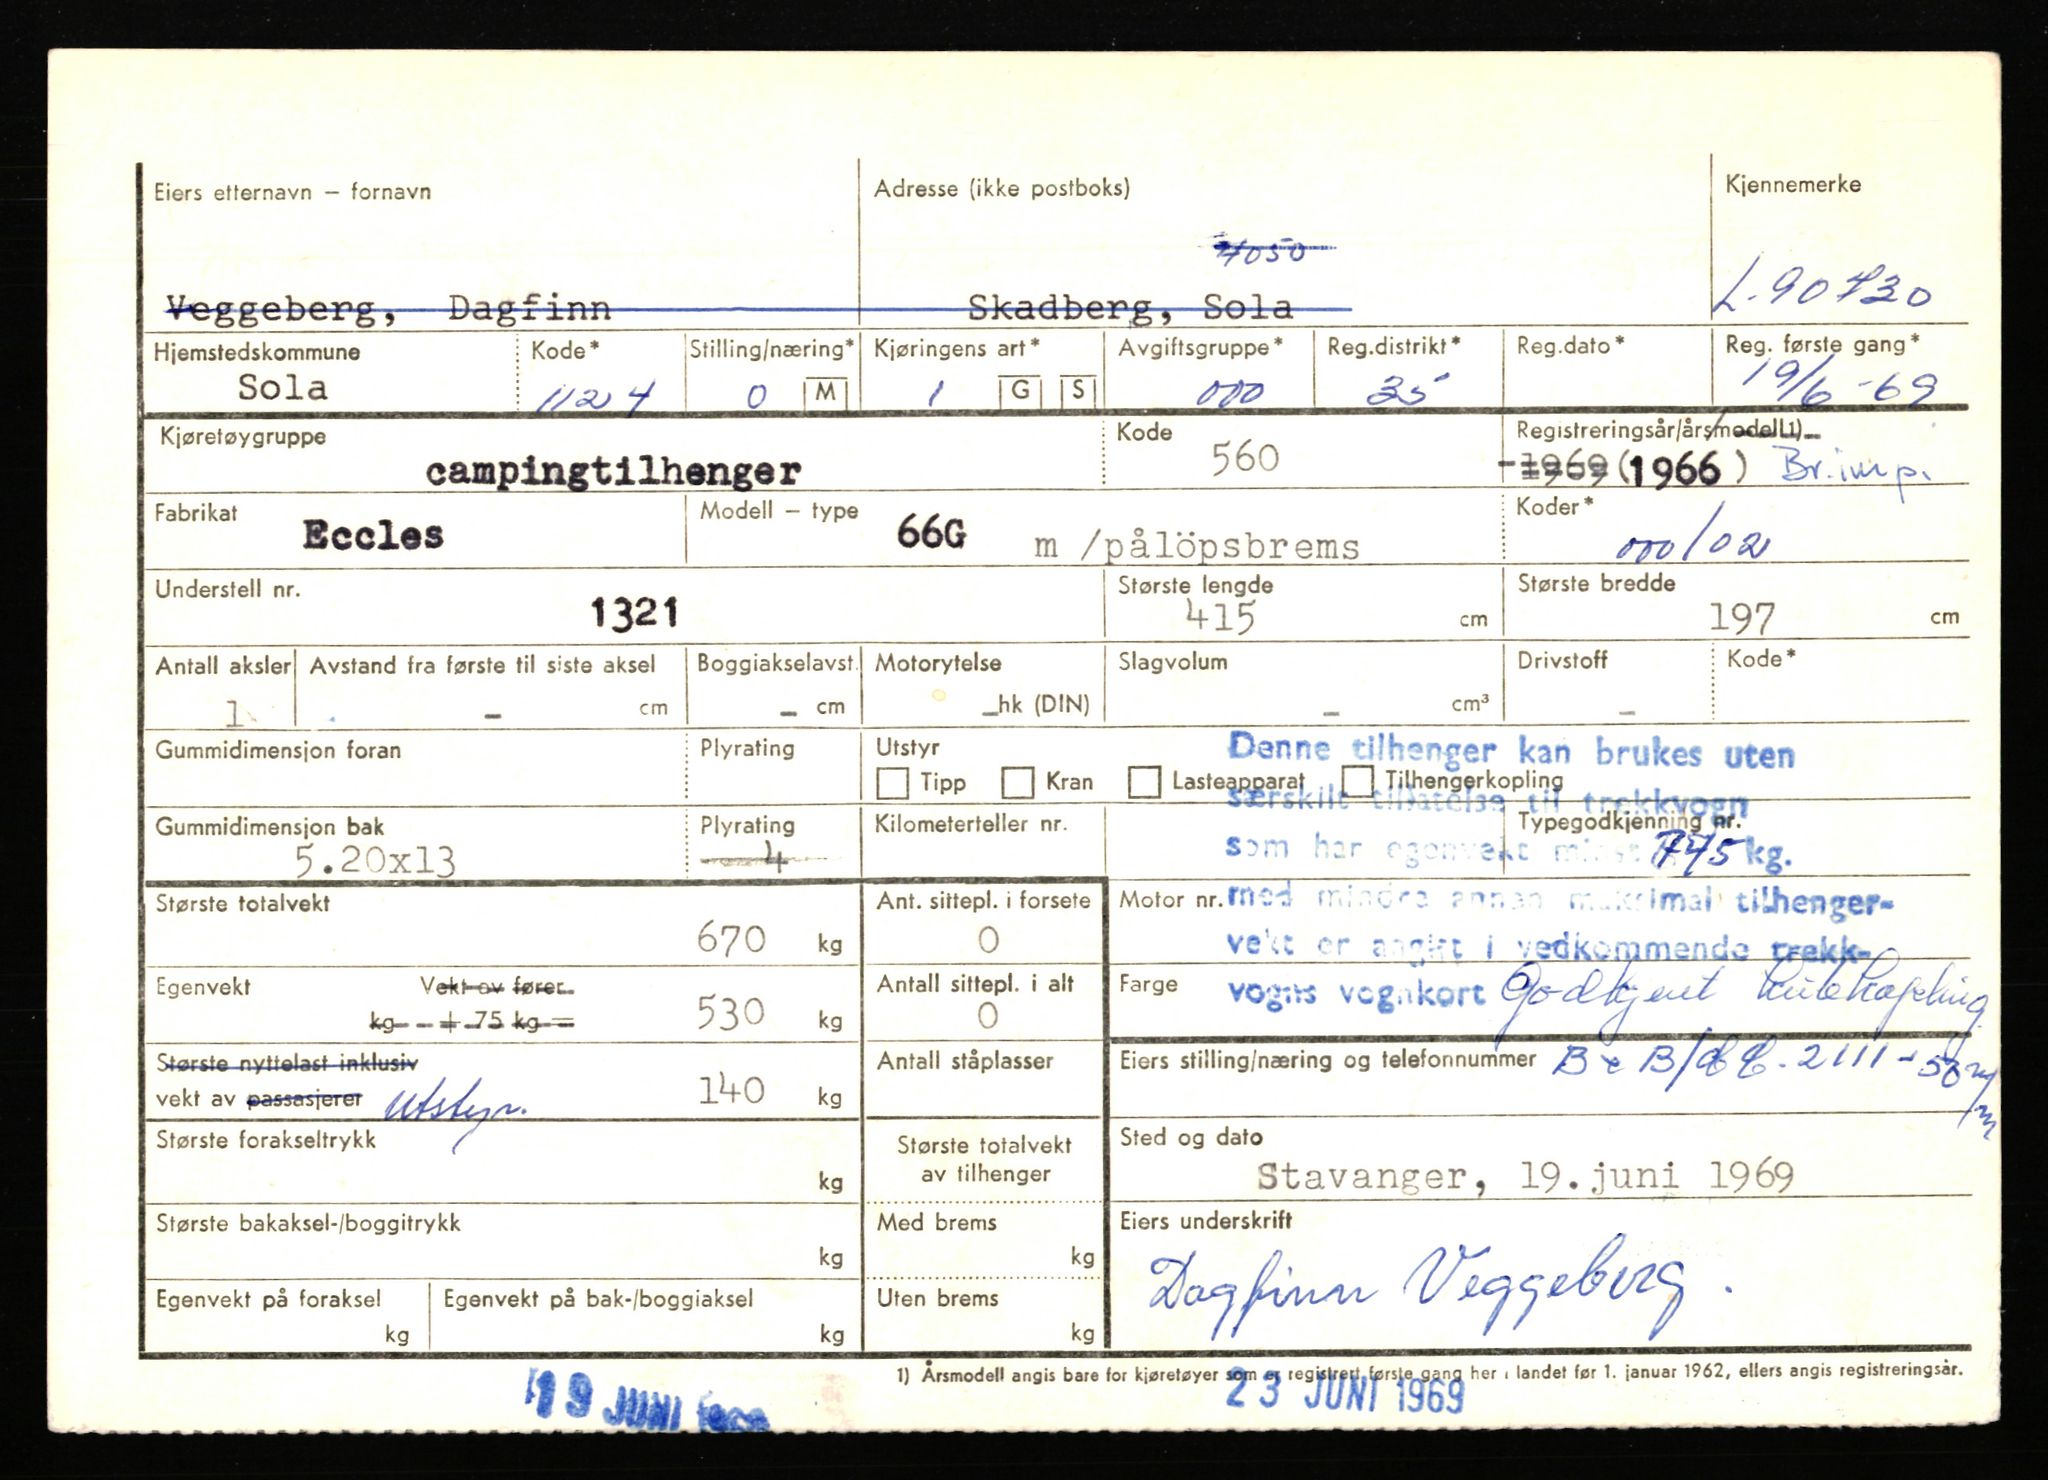 Eiers etternavn – fornavn
Adresse (ikke postboks)
Kjennemerke
4050
Veggeberg, Dagfinn
Skadberg, Sola
L-90730
Hjemstedskommune
Kode*
Stilling/næring*
Kjøringens art*
Avgiftsgruppe*
Reg.distrikt*
Reg.dato*
Reg. første gang*
Sola
1124
0 M
1 G S
000
35
19/6-69
Kjøretøygruppe
Kode
Registreringsår/årsmodell1)
campingtilhenger
560
1969 (1966) Br.imp.
Fabrikat
Modell – type
Koder*
Eccles
66G m /pålöpsbrems
000/02
Understell nr.
Største lengde
Største bredde
1321
415 cm
197 cm
Antall aksler
Avstand fra første til siste aksel
Boggiakselavst.
Motorytelse
Slagvolum
Drivstoff
Kode*
1
– cm
– cm
– hk (DIN)
– cm³
–
Gummidimensjon foran
Plyrating
Utstyr
Tipp Kran Lasteapparat Tilhengerkopling
Denne tilhenger kan brukes uten
særskilt tillatelse til trekkvogn
som har egenvekt minst 745 kg.
med mindre annen maksimal tilhenger-
vekt er angitt i vedkommende trekk-
vogns vognkort
Gummidimensjon bak
Plyrating
Kilometerteller nr.
Typegodkjenning nr.
5.20x13
4
Største totalvekt
670 kg
Ant. sittepl. i forsete
0
Motor nr.
Egenvekt
Vekt av fører
kg + 75 kg =
530 kg
Antall sittepl. i alt
0
Farge
Godkjent kulekopling
Største nyttelast inklusiv
vekt av passasjerer utstyr.
140 kg
Antall ståplasser
Eiers stilling/næring og telefonnummer
Største forakseltrykk
kg
Største totalvekt
av tilhenger
Sted og dato
Stavanger, 19.juni 1969
Største bakaksel-/boggitrykk
kg
Med brems
kg
Eiers underskrift
Dagfinn Veggeberg.
Egenvekt på foraksel
kg
Egenvekt på bak-/boggiaksel
kg
Uten brems
kg
1) Årsmodell angis bare for kjøretøyer som er registrert første gang her i landet før 1. januar 1962, ellers angis registreringsår.
19 JUNI
23 JUNI 1969